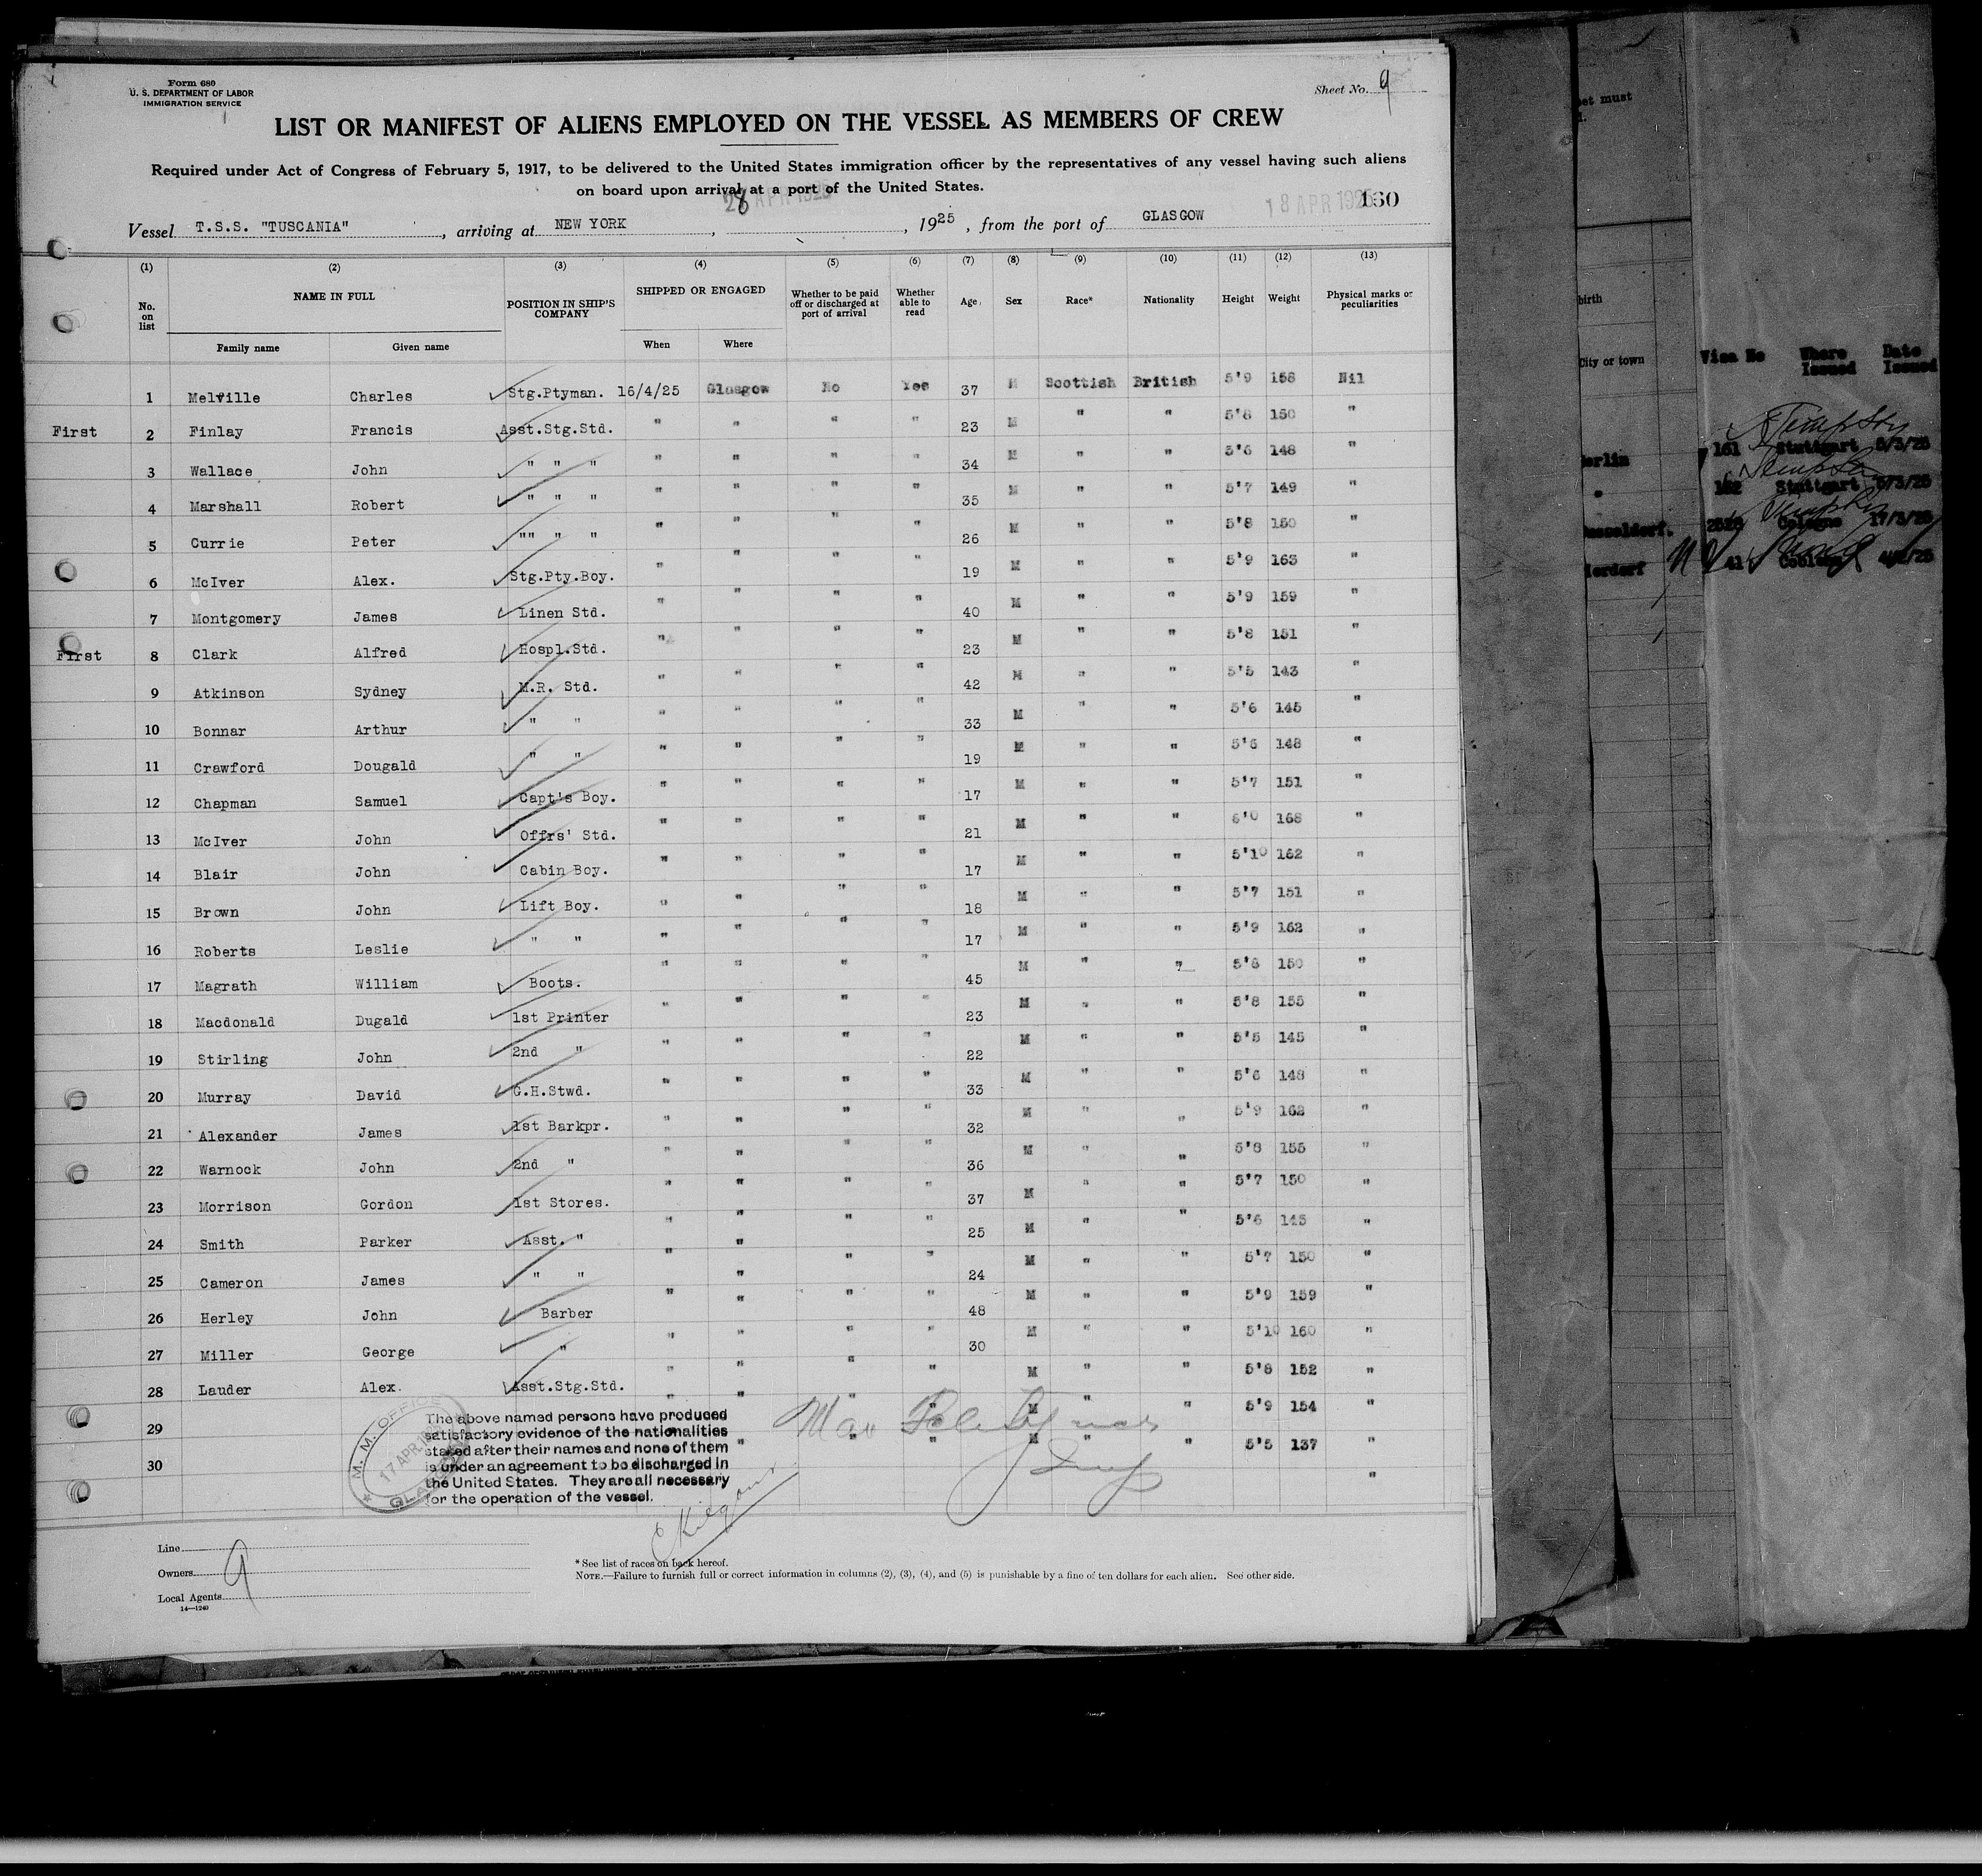 Form 680
U. S. DEPARTMENT OF LABOR
IMMIGRATION SERVICE
Sheet No. 9
LIST OR MANIFEST OF ALIENS EMPLOYED ON THE VESSEL AS MEMBERS OF CREW
Required under Act of Congress of February 5, 1917, to be delivered to the United States immigration officer by the representatives of any vessel having such aliens
on board upon arrival at a port of the United States.
28 APR 1925
18 APR 1925 160
Vessel T.S.S. "TUSCANIA", arriving at NEW YORK, , 1925, from the port of GLASGOW
(1) (2) (3) (4) (5) (6) (7) (8) (9) (10) (11) (12) (13)
No. on list NAME IN FULL POSITION IN SHIP'S COMPANY SHIPPED OR ENGAGED Whether to be paid off or discharged at port of arrival Whether able to read Age Sex Race* Nationality Height Weight Physical marks or peculiarities
Family name Given name When Where
1 Melville Charles Stg.Ptyman. 16/4/25 Glasgow No Yes 37 M Scottish British 5'9 158 Nil
First 2 Finlay Francis Asst.Stg.Std. " " " " 23 M " " 5'8 150 "
3 Wallace John " " " " " " " 34 M " " 5'6 148 "
4 Marshall Robert " " " " " " " 35 M " " 5'7 149 "
5 Currie Peter "" " " " " " " 26 M " " 5'8 150 "
6 McIver Alex. Stg.Pty.Boy. " " " " 19 M " " 5'9 163 "
7 Montgomery James Linen Std. " " " " 40 M " " 5'9 159 "
First 8 Clark Alfred Hospl.Std. " " " " 23 M " " 5'8 151 "
9 Atkinson Sydney M.R. Std. " " " " 42 M " " 5'5 143 "
10 Bonnar Arthur " " " " " " 33 M " " 5'6 145 "
11 Crawford Dougald " " " " " " 19 M " " 5'6 148 "
12 Chapman Samuel Capt's Boy. " " " " 17 M " " 5'7 151 "
13 McIver John Offrs' Std. " " " " 21 M " " 6'0 168 "
14 Blair John Cabin Boy. " " " " 17 M " " 5'10 162 "
15 Brown John Lift Boy. " " " " 18 M " " 5'7 151 "
16 Roberts Leslie " " " " " " 17 M " " 5'9 162 "
17 Magrath William Boots. " " " " 45 M " " 5'8 150 "
18 Macdonald Dugald 1st Printer " " " " 23 M " " 5'8 155 "
19 Stirling John 2nd " " " " " 22 M " " 5'5 145 "
20 Murray David G.H.Stwd. " " " " 33 M " " 5'6 148 "
21 Alexander James 1st Barkpr. " " " " 32 M " " 5'9 162 "
22 Warnock John 2nd " " " " " 36 M " " 5'8 155 "
23 Morrison Gordon 1st Stores. " " " " 37 M " " 5'7 150 "
24 Smith Parker Asst. " " " " " 25 M " " 5'6 145 "
25 Cameron James " " " " " " 24 M " " 5'7 150 "
26 Herley John Barber " " " " 48 M " " 5'9 159 "
27 Miller George " " " " " 30 M " " 5'10 160 "
28 Lauder Alex. Asst.Stg.Std. " " " " M " " 5'8 152 "
29 " " " M " " 5'9 154 "
30 " " " M " " 5'5 137 "
M. M. OFFICE
17 APR 19
The above named persons have produced
satisfactory evidence of the nationalities
stated after their names and none of them
is under an agreement to be discharged in
the United States. They are all necessary
for the operation of the vessel.
Line
Owners
Local Agents
9
14—1240
* See list of races on back hereof.
NOTE.—Failure to furnish full or correct information in columns (2), (3), (4), and (5) is punishable by a fine of ten dollars for each alien. See other side.
et must
birth
City or town Visa No Where Issued Date Issued
erlin 161 Stuttgart 5/3/25
" 162 Stuttgart 5/3/25
usseldorf. Cologne 17/3/25
41